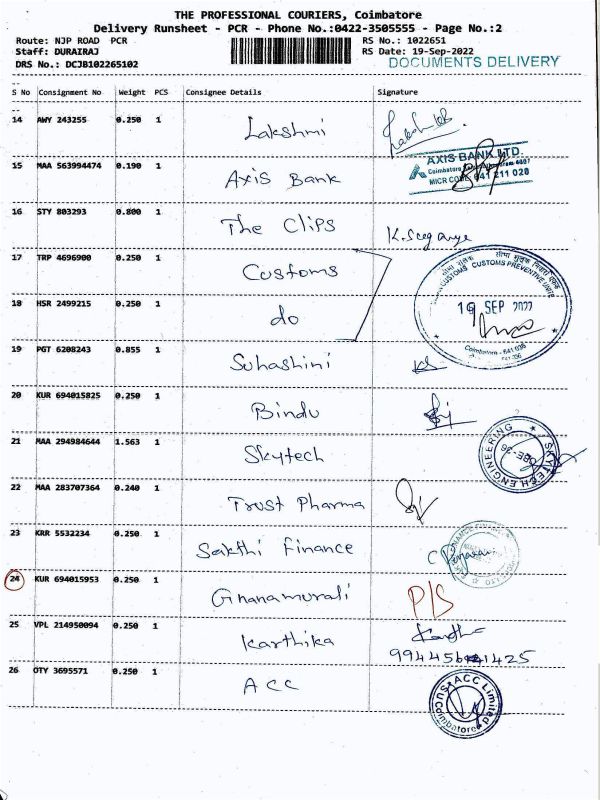 THE PROFESSIONAL COURIERS, Coimbatore
Delivery Runsheet - PCR - Phone No.:0422-3505555 - Page No.:2
Route: NJP ROAD PCR
RS No.: 1022651
Staff: DURAIRAJ
RS Date: 19-Sep-2022
DRS No.: DCJB102265102
DOCUMENTS DELIVERY
S No Consignment No Weight PCS Consignee Details Signature
14 AWY 243255 0.250 1 Lakshmi
15 MAA 563994474 0.190 1 Axis Bank
AXIS BANK LTD.
Coimbatore
MICR CODE 641 211 020
16 STY 803293 0.800 1 The Clips
17 TRP 4696900 0.250 1 Customs
CUSTOMS PREVENTIVE UNIT
19 SEP 2022
Coimbatore - 641
18 HSR 2499215 0.250 1 do
19 PGT 6208243 0.855 1 Suhashini
20 KUR 694015825 0.250 1 Bindu
21 MAA 294984644 1.563 1 Skytech
SKYTECH ENGINEERING
CBE-36
22 MAA 283707364 0.240 1 Trust Pharma
23 KRR 5532234 0.250 1 Sakthi Finance
24 KUR 694015953 0.250 1 Gnanamurali P/S
25 VPL 214950094 0.250 1 Karthika
26 OTY 3695571 0.250 1 ACC
ACC Limited
Coimbatore